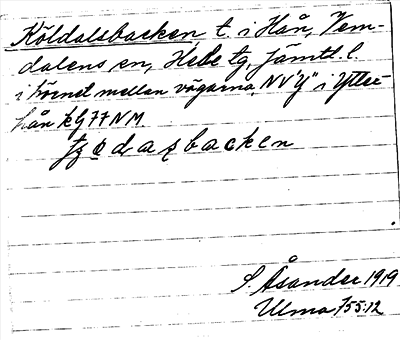 Köldalsbacken, t. i Hån, Vem-
dalens sn, Hede tg, Jämtl. l.
i hörnet mellan vägarna, NV "y" i Ytter-
hån kg 77 NM.
backen
S. Åsander 1919
Ulma 755:12